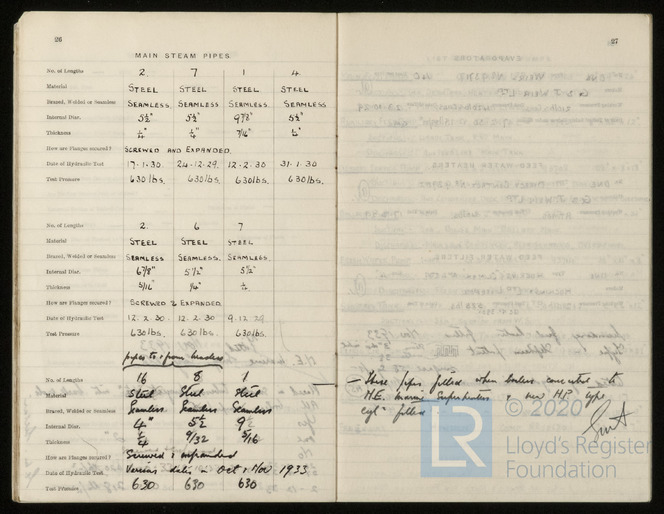 26
MAIN STEAM PIPES.
No. of Lengths 2. 7 1 4.
Material STEEL STEEL STEEL STEEL
Brazed, Welded or Seamless SEAMLESS. SEAMLESS. SEAMLESS. SEAMLESS
Internal Diar. 5½" 5½" 9⅞" 5½"
Thickness ¼" ¼" 7/16" ¼"
How are Flanges secured? SCREWED AND EXPANDED.
Date of Hydraulic Test 17.1.30. 24.12.29. 12.2.30 31.1.30
Test Pressure 630lbs. 630lbs. 630lbs. 630lbs.
No. of Lengths 2. 6 7
Material STEEL STEEL STEEL
Brazed, Welded or Seamless SEAMLESS SEAMLESS. SEAMLESS.
Internal Diar. 6⅞" 5½" 5½"
Thickness 5/16" ¼" ¼
How are Flanges secured? SCREWED & EXPANDED
Date of Hydraulic Test 12.2.30. 12.2.30 9.12.29
Test Pressure 630lbs. 630lbs. 630lbs.
pipes to & from headers
No. of Lengths 16 8 1
Material Steel Steel Steel
Brazed, Welded or Seamless Seamless Seamless Seamless
Internal Diar. 4" 5½ 9½
Thickness ¼ 9/32 5/16
How are Flanges secured? Screwed & expanded
Date of Hydraulic Test Various dates in Oct & Nov. 1933
Test Pressure 630 630 630
27
— These pipes fitted when boilers converted to
N.E. marine Superheaters & new H.P. type
cyl" fitted
© 2020
LR
Lloyd's Register
Foundation